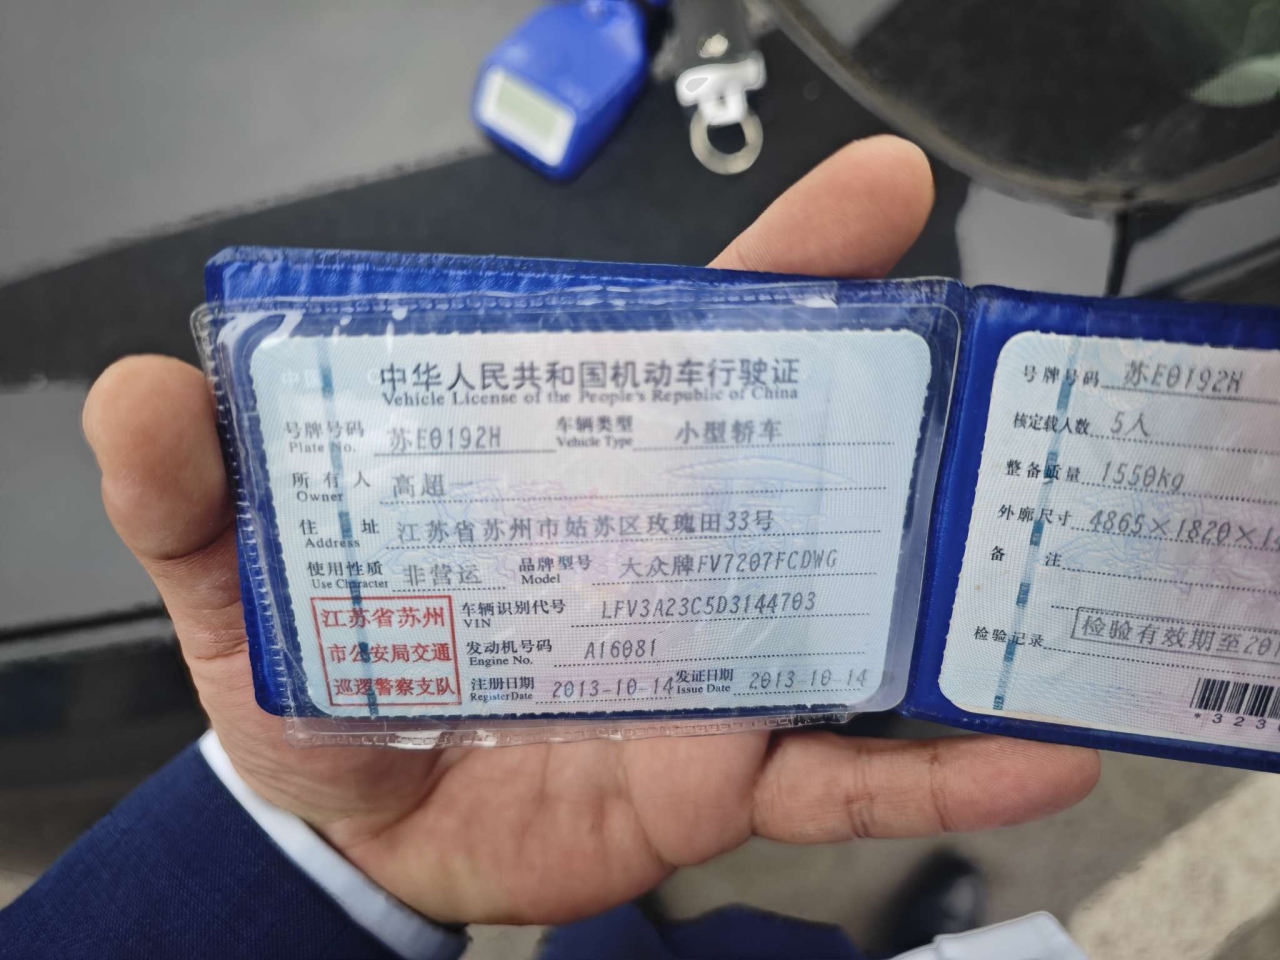 中华人民共和国机动车行驶证
Vehicle License of the People's Republic of China
号牌号码 苏E0192H 车辆类型 小型轿车
Plate No. Vehicle Type
所有人 高超
Owner
住址 江苏省苏州市姑苏区玫瑰田33号
Address
使用性质 非营运 品牌型号 大众牌FV7207FCDWG
Use Character Model
江苏省苏州
市公安局交通
巡逻警察支队
车辆识别代号 LFV3A23C5D3144703
VIN
发动机号码 A16081
Engine No.
注册日期 2013-10-14 发证日期 2013-10-14
Register Date Issue Date
号牌号码 苏E0192H
核定载人数 5人
整备质量 1550kg
外廓尺寸 4865×1820×
备注
检验记录
检验有效期至201
*323